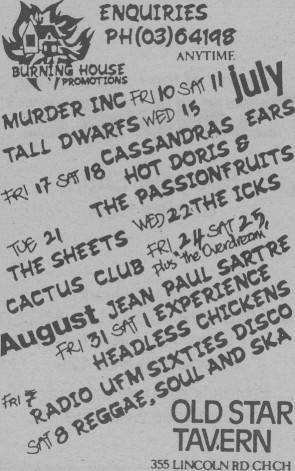 ENQUIRIES
PH(03)64198
ANYTIME
BURNING HOUSE
PROMOTIONS
july
MURDER INC FRI 10 SAT 11
TALL DWARFS WED 15
FRI 17 SAT 18 CASSANDRAS EARS
HOT DORIS &
THE PASSIONFRUITS
TUE 21
THE SHEETS WED 22 THE ICKS
CACTUS CLUB FRI 24 SAT 25,
Plus "the Overdream"
August JEAN PAUL SARTRE
FRI 31 SAT 1 EXPERIENCE
HEADLESS CHICKENS
FRI 7 RADIO UFM SIXTIES DISCO
SAT 8 REGGAE, SOUL AND SKA
OLD STAR
TAVERN
355 LINCOLN RD CHCH